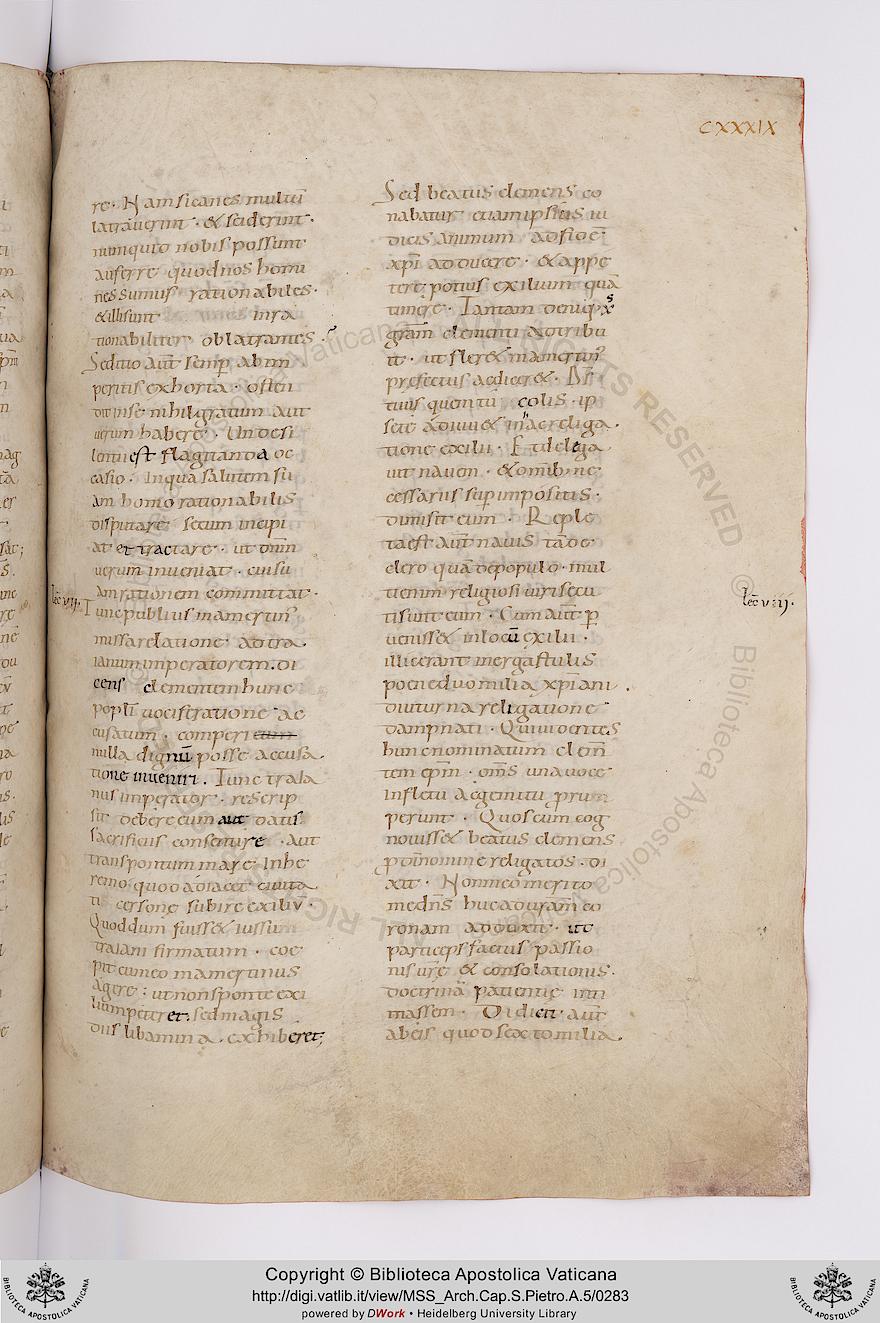 CXXXIX
re· Nam si canes multū
latrauerint· & sciderint·
numquid nobis possunt
auferre quod nos homi
nes sumus rationabiles·
& illi sunt inra
tionabiliter oblatrantes·
Seditio aūt semp̄ ab im
peritis exhorta· osten
dit in se nihil gratum aut
uerum habere· Unde si
lentiū est flagitanda oc
casio· In qua salutem su
am homo rationabilis
disputare secum incipi
at et tractare· ut dn̄m
uerum inueniat· cui su
am rationem committat·
lec̄ vij·
Tunc publius mamertin᾽
missa relatione ad tra
ianum imperatorem· di
cens clementem hunc
popl̄i uociferatione ac
cusatum· comperi cum
nulla dignū posse accusa
tione inueniri· Tunc traia
nus imperator· rescrip
sit debere eum aut datis
sacrificiis consentire· aut
trans pontum mare In he
remo quod adiacet ciuita
ti cersone subire exiliū·
Quod dum fuiss& iussum
traiani firmatum· coe
pit cum eo mamertinus
agere: ut non sponte exi
lium peteret· sed magis
diis libamina· exhiberet;
Sed beatus clemens co
nabatur etiam ipsius iu
dicis animum ad fidē
xp̄i adducere· & appe
tere potius exilium quā
timere· Tantam deniq; x̄p̄s
grām clementi adtribu
it· ut fler& mamertin᾽
prefectus ac dicer&· D̄s
tuus quem tū colis· ip
se adiuu& in hac religa·
tione exilii· Et delega
uit nauem· & omīb; ne
cessariis sup̄impositis·
dimisit eum· Reple
ta est aūt nauis tā de
clero quā de populo· mul
ti enim religiosi uiri secu
ti sunt eum· Cum aūt p̄
ueniss& in locū exilii·
lec̄ viij·
illic erant in ergastulis
poene duo milia xp̄iani
diuturna religatione
dampnati· Qui uidentes
hunc nominatum clem̄
tem ep̄m· om̄s una uoce
in fletu ac gemitu prum
perunt· Quos cum cog
nouiss& beatus clemens
p̄ dn̄i nomine religatos· di
xit· Non meo merito
me dn̄s huc ad urām co
ronam adduxit· ut
particeps factus passio
nis urē & consolationis·
doctrinā patientiē inti
massem· Didicit aūt
ab eis quod sexto miliā·
Copyright © Biblioteca Apostolica Vaticana
http://digi.vatlib.it/view/MSS_Arch.Cap.S.Pietro.A.5/0283
powered by DWork • Heidelberg University Library